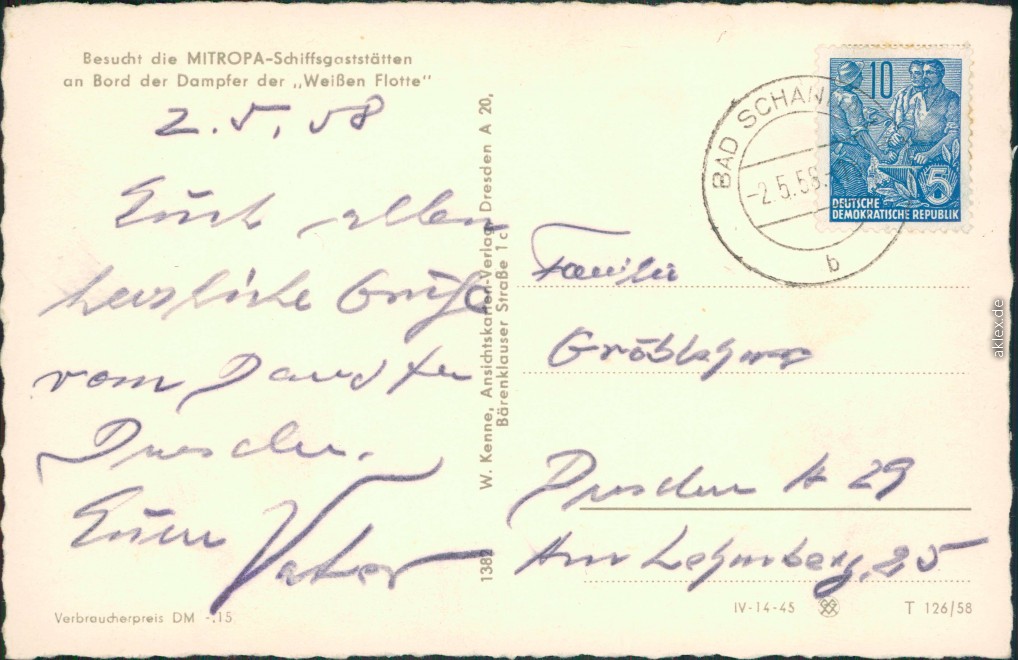 Besucht die MITROPA-Schiffsgaststätten
an Bord der Dampfer der „Weißen Flotte"
2.5.58
Euch allen
herzliche Grüße
vom Dampfer
Dresden.
Euer
Vater
Verbraucherpreis DM -.15
W. Kenne, Ansichtskarten-Verlag, Dresden A 20,
Bärenklauser Straße 1 c
1382
BAD SCHAN
-2.5.58.
b
10
5
DEUTSCHE
DEMOKRATISCHE REPUBLIK
Familie
Dresden A 29
Am Lehmberg, 25
IV-14-45
T 126/58
aklex.de